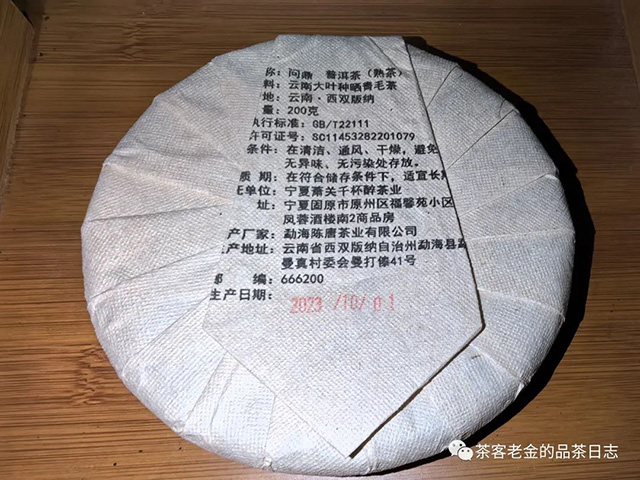 你: 问鼎 普洱茶（熟茶）
料: 云南大叶种晒青毛茶
地: 云南·西双版纳
量: 200克
执行标准: GB/T22111
许可证号: SC11453282201079
条件: 在清洁、通风、干燥，避免
无异味、无污染处存放。
质 期: 在符合储存条件下，适宜长期
单位: 宁夏萧关千杯醉茶业
址: 宁夏固原市原州区福馨苑小区
凤蓉酒楼南2商品房
产厂家: 勐海陈唐茶业有限公司
产地址: 云南省西双版纳自治州勐海县勐
曼真村委会曼打傣41号
编: 666200
生产日期: 2023/10/01
茶客老金的品茶日志